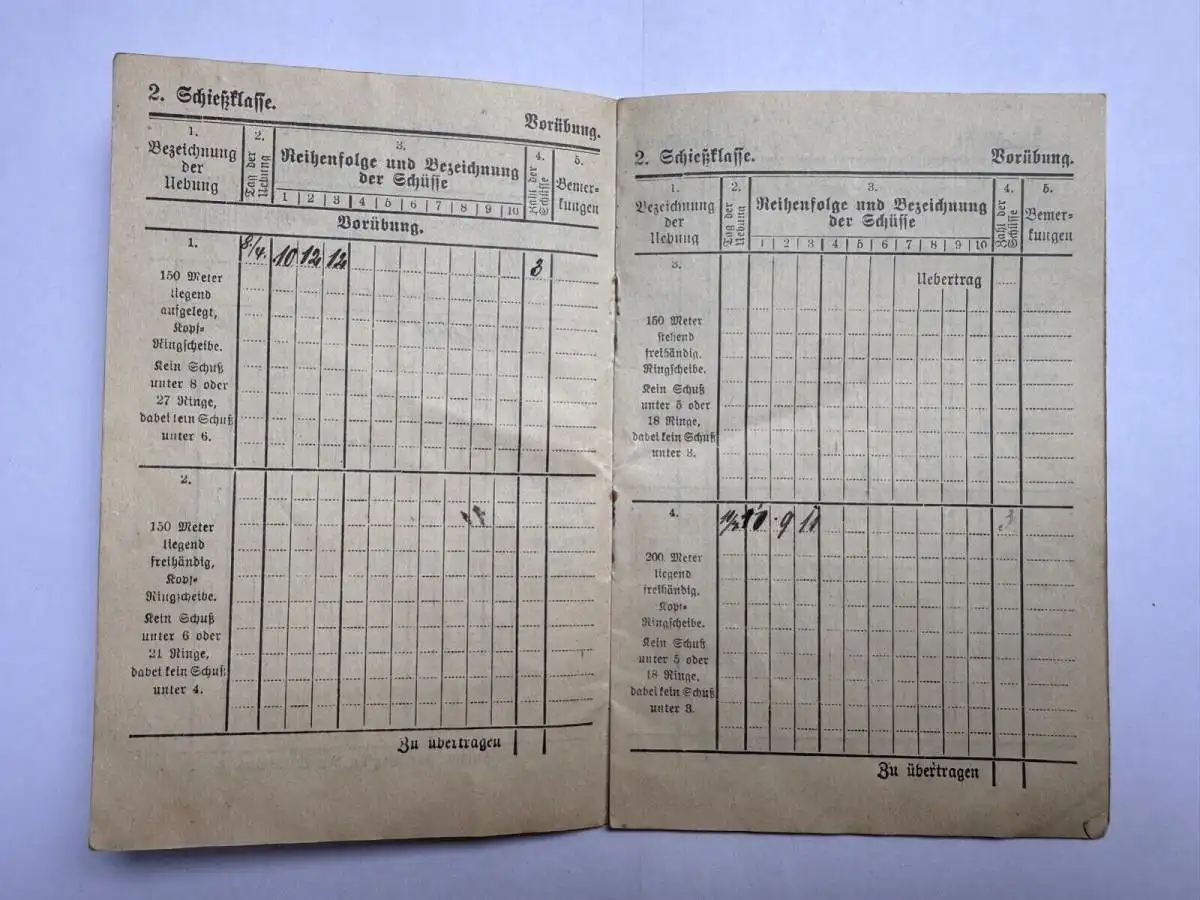 2. Schießklasse.
Vorübung.
1.
Bezeichnung
der
Uebung
2.
Tag der
Uebung
3.
Reihenfolge und Bezeichnung
der Schüsse
1 2 3 4 5 6 7 8 9 10
4.
Zahl der
Schüsse
5.
Bemer-
kungen
Vorübung.
1.
8/4. 10 12 12 3
150 Meter
liegend
aufgelegt,
Kopf-
Ringscheibe.
Kein Schuß
unter 8 oder
27 Ringe,
dabei kein Schuß
unter 6.
2.
150 Meter
liegend
freihändig,
Kopf-
Ringscheibe.
Kein Schuß
unter 6 oder
21 Ringe,
dabei kein Schuß
unter 4.
Zu übertragen
2. Schießklasse.
Vorübung.
1.
Bezeichnung
der
Uebung
2.
Tag der
Uebung
3.
Reihenfolge und Bezeichnung
der Schüsse
1 2 3 4 5 6 7 8 9 10
4.
Zahl der
Schüsse
5.
Bemer-
kungen
3.
Uebertrag
150 Meter
stehend
freihändig.
Ringscheibe.
Kein Schuß
unter 5 oder
18 Ringe,
dabei kein Schuß
unter 3.
4.
10 9 11 3
200 Meter
liegend
freihändig.
Kopf-
Ringscheibe.
Kein Schuß
unter 5 oder
18 Ringe,
dabei kein Schuß
unter 3.
Zu übertragen